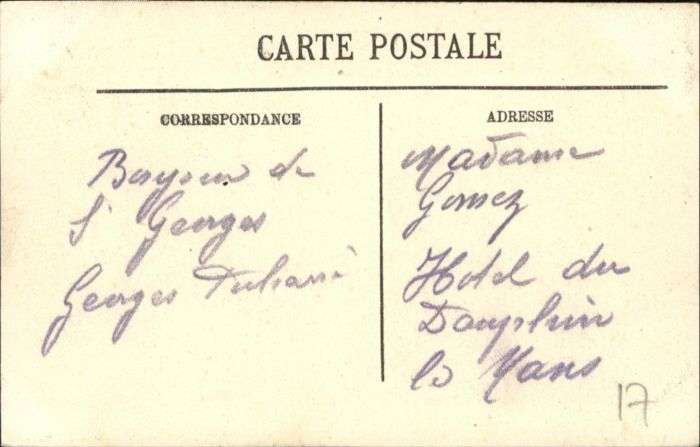 CARTE POSTALE
CORRESPONDANCE
de
St Georges
Georges
ADRESSE
Madame
Gomez
Hotel du
Dauphin
le Mans
17